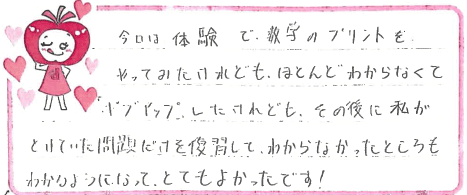 今日は体験で、数学のプリントを
やってみたけれども、ほとんどわからなくて
ギブアップしたけれども、その後に私が
とけていた問題だけを復習して、わからなかったところも
わかるようになって、とてもよかったです!